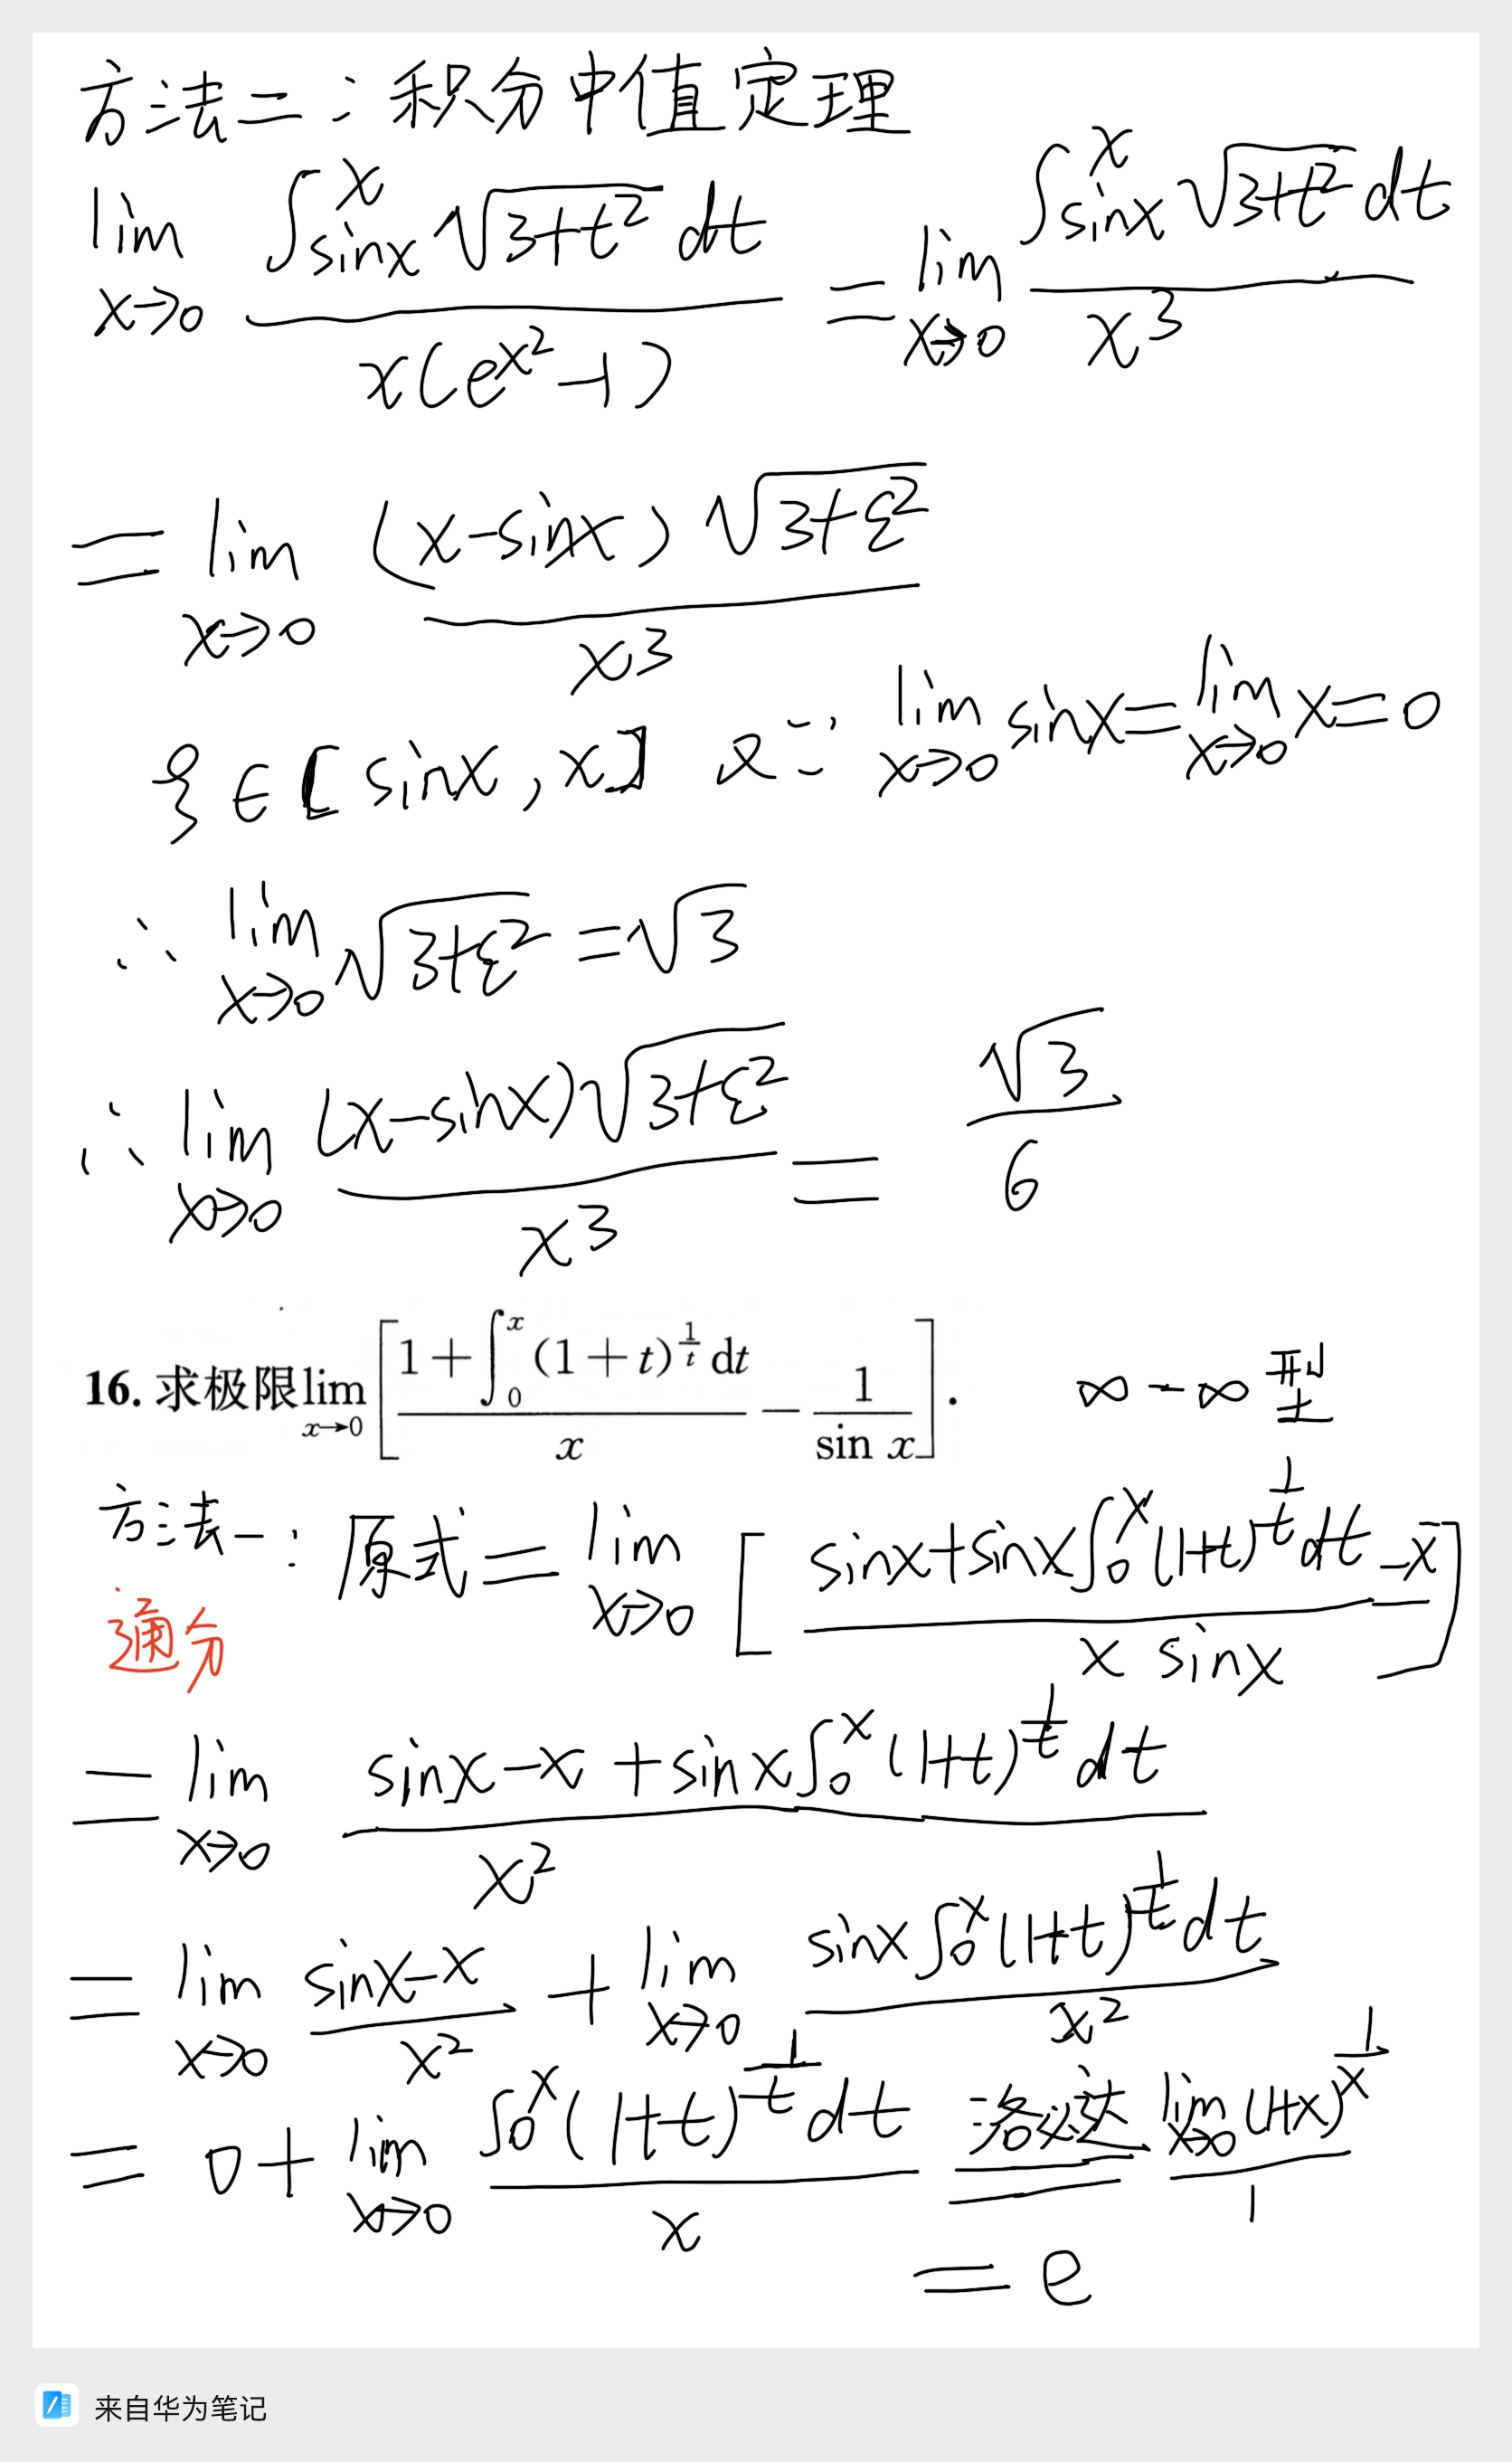 方法二：积分中值定理
lim x→0 ∫_{sinx}^{x} √(3+t²) dt / x(e^{x²}-1) = lim x→0 ∫_{sinx}^{x} √(3+t²) dt / x³
= lim x→0 (x-sinx) √(3+ξ²) / x³
ξ ∈ [sinx, x] 又∵ lim x→0 sinx = lim x→0 x = 0
∴ lim x→0 √(3+ξ²) = √3
∴ lim x→0 (x-sinx)√(3+ξ²) / x³ = √3 / 6
16. 求极限 lim x→0 [ (1+∫_0^x (1+t)^{1/t} dt) / x − 1 / sin x ]. ∞-∞型
方法一：原式 = lim x→0 [ (sinx+sinx∫_0^x (1+t)^{1/t} dt -x) / x sinx ]
通分
= lim x→0 (sinx-x+sinx∫_0^x (1+t)^{1/t} dt) / x²
= lim x→0 (sinx-x) / x² + lim x→0 sinx∫_0^x (1+t)^{1/t} dt / x²
= 0+ lim x→0 ∫_0^x (1+t)^{1/t} dt / x 洛必达 lim x→0 (1+x)^{1/x} / 1
= e
来自华为笔记